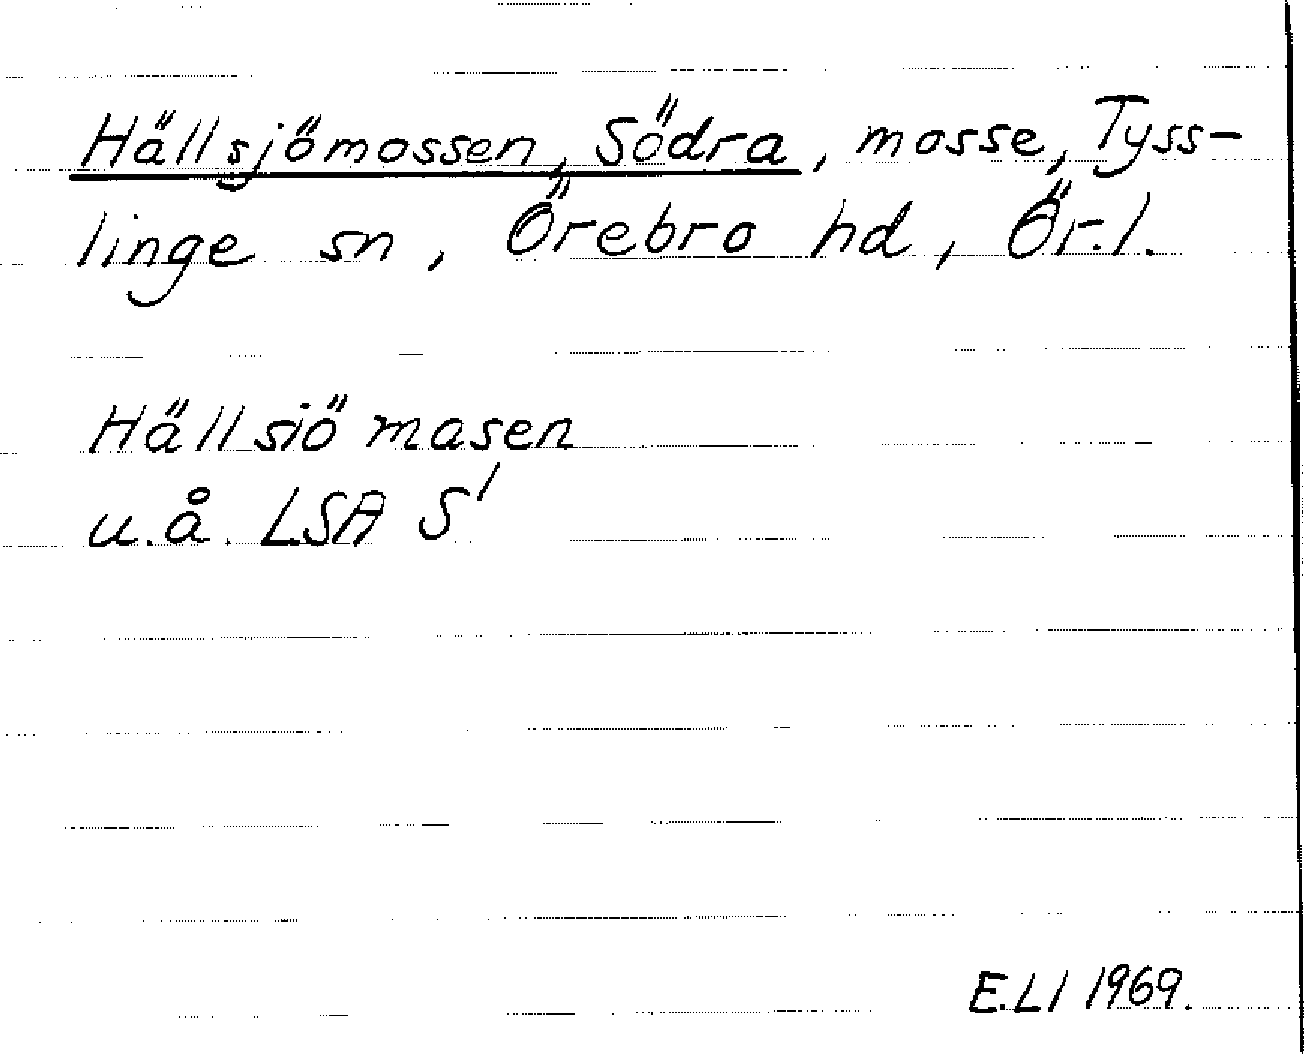 Hällsjömossen, Södra, mosse, Tyss-
linge sn, Örebro hd, Ör.l.
Hällsiö masen
u.å. LSA S'
E.Ll 1969.